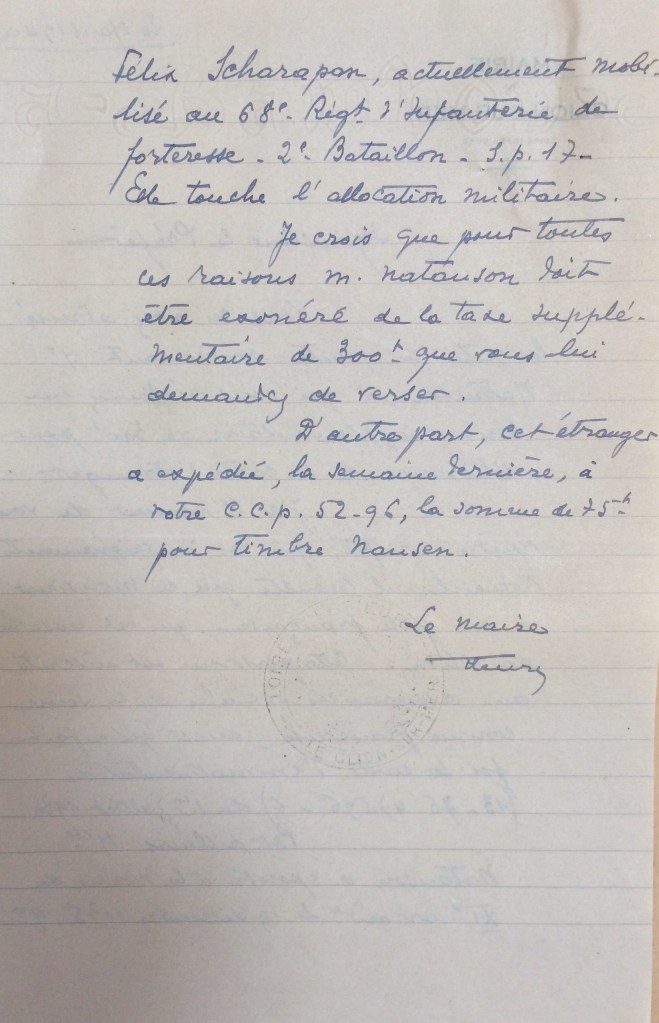 Félix Scharapan, actuellement mobi-
lisé au 68e. Régt d'Infanterie de
forteresse - 2e. Bataillon - S.p. 17 -
Elle touche l'allocation militaire.
Je crois que pour toutes
ces raisons M. Natanson doit
être exonéré de la taxe supplé-
mentaire de 300f que vous lui
demandez de verser.
D'autre part, cet étranger
a expédié, la semaine dernière, à
votre C.C.p. 52-96, la somme de 75f
pour timbre Nansen.
Le Maire